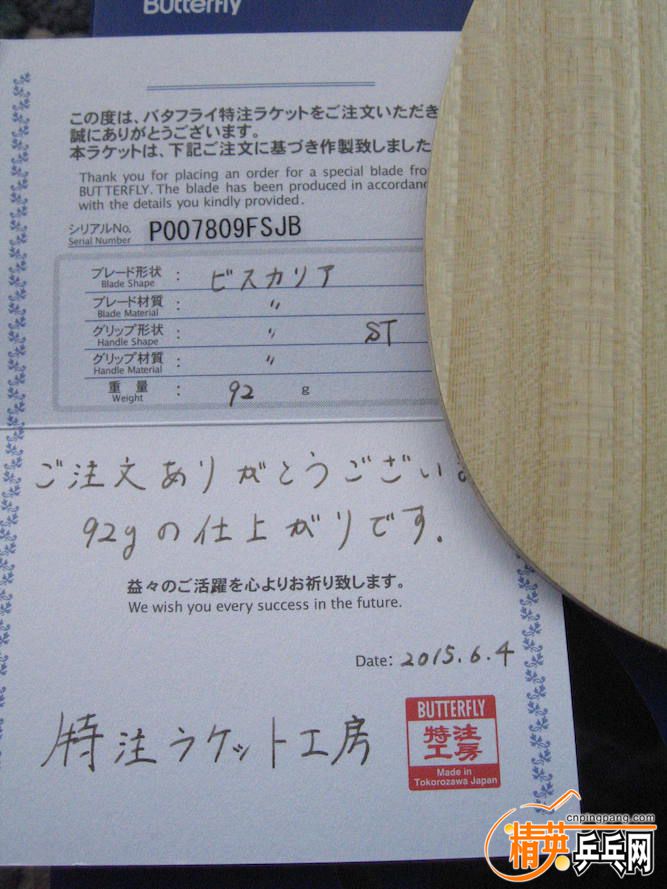 Butterfly
この度は、バタフライ特注ラケットをご注文いただき
誠にありがとうございます。
本ラケットは、下記ご注文に基づき作製致しました
Thank you for placing an order for a special blade fro
BUTTERFLY. The blade has been produced in accordanc
with the details you kindly provided.
シリアルNo. P007809FSJB
Serial Number
ブレード形状 : ビスカリア
Blade Shape
ブレード材質 : 〃
Blade Material
グリップ形状 : 〃 ST
Handle Shape
グリップ材質 : 〃
Handle Material
重 量 : 92 g
Weight
ご注文ありがとうござい
92gの仕上がりです.
益々のご活躍を心よりお祈り致します。
We wish you every success in the future.
Date: 2015.6.4
特注ラケット工房
BUTTERFLY
特注
工房
Made in
Tokorozawa Japan
cnpingpang.com
精英乒乓网